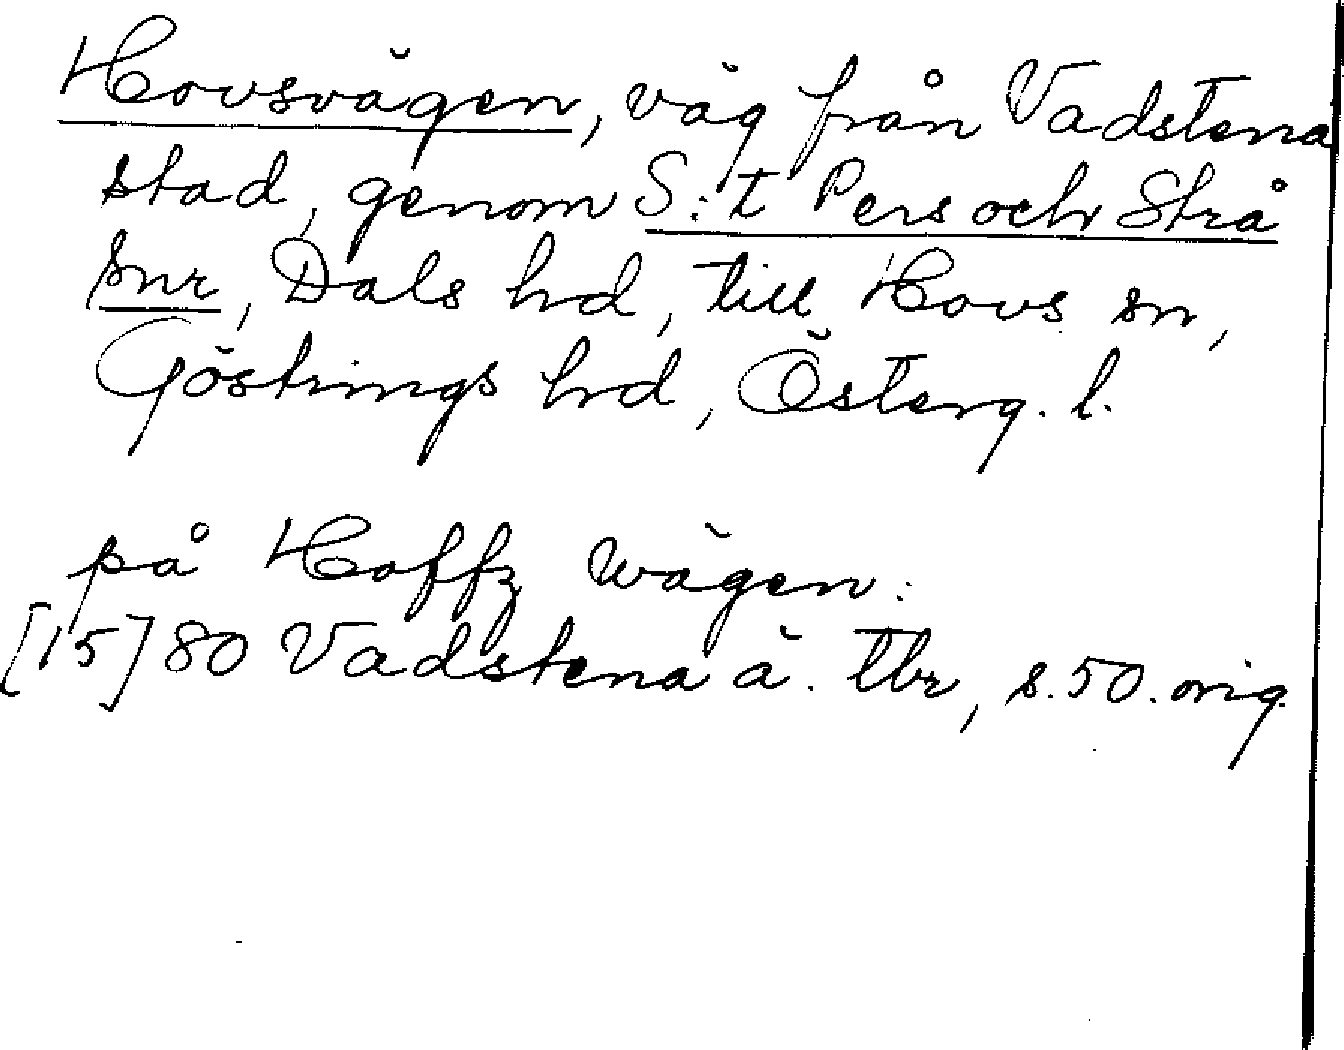 Hovsvägen, väg från Vadstena
stad, genom S:t Pers och Strå
snr, Dals hd, till Hovs sn,
Göstrings hd, Österg. l.
på Hoffz wägen:
[15]80 Vadstena ä. tbr, s. 50. orig.